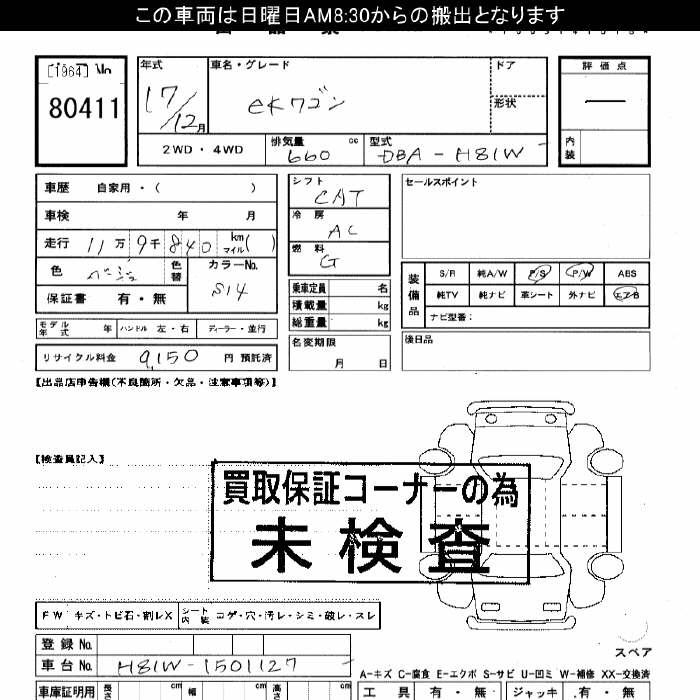 この車両は日曜日AM8:30からの搬出となります
[1964] No
80411
年式
17/12月
車名・グレード
eKワゴン
ドア
形状
評価点
内装
2WD・4WD
排気量
660
cc
型式
DBA-H81W
車歴 自家用・( )
車検 年 月
走行 11万9千840 km マイル( )
色 ベージュ
色替
カラーNo.
S14
保証書 有・無
シフト
CAT
冷房
AC
燃料
G
セールスポイント
装備品
S/R 純A/W P/S P/W ABS
純TV 純ナビ 革シート 外ナビ エアB
ナビ型番:
乗車定員 名
積載量 kg
総重量 kg
モデル年式 年 ハンドル 左・右 ディーラー・並行
名変期限
月 日
後日品
リサイクル料金 9,150 円 預託済
【出品店申告欄(不良箇所・欠品・注意事項等)】
【検査員記入】
買取保証コーナーの為
未検査
FW キズ・トビ石・割レX シート内装 コゲ・穴・汚レ・シミ・破レ・スレ
登録No.
車台No. H81W-1501127
スペア
A-キズ C-腐食 E-エクボ S-サビ U-凹ミ W-補修 XX-交換済
車庫証明用 長さ cm 幅 cm 高さ cm
工具 有・無 ジャッキ 有・無